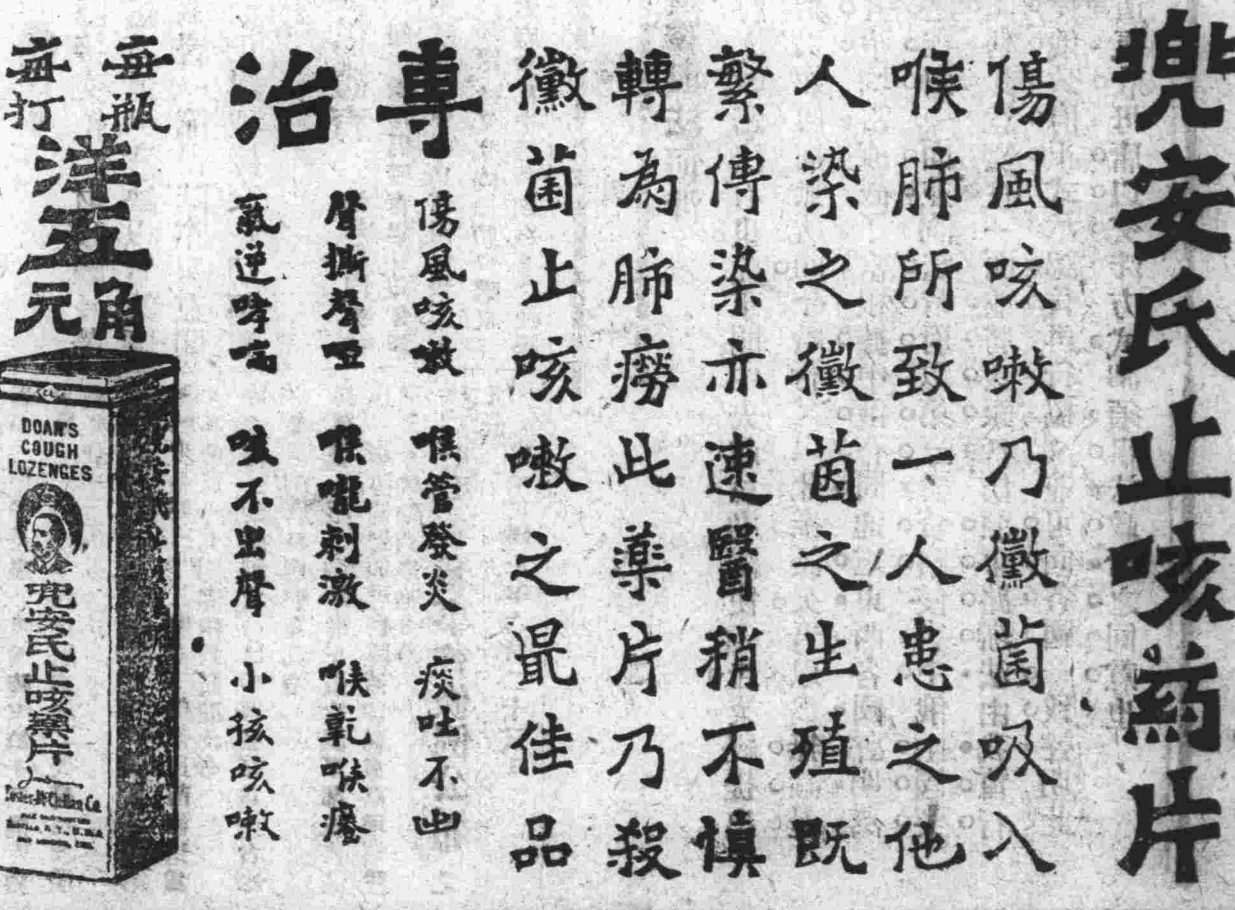 兜安氏止咳药片
傷風咳嗽乃黴菌吸入
喉肺所致一人患之他
人染之黴菌之生殖既
繁傳染亦速醫稍不慎
轉為肺癆此藥片乃殺
黴菌止咳嗽之最佳品
專治
傷風咳嗽 喉管發炎 痰吐不出
聲撕聲啞 喉嚨刺激 喉乾喉癢
氣逆哮喘 咳不出聲 小孩咳嗽
每瓶洋五角
每打洋五元
DOAN'S
COUGH
LOZENGES
兜安氏止咳藥片
Foster-McClellan Co.